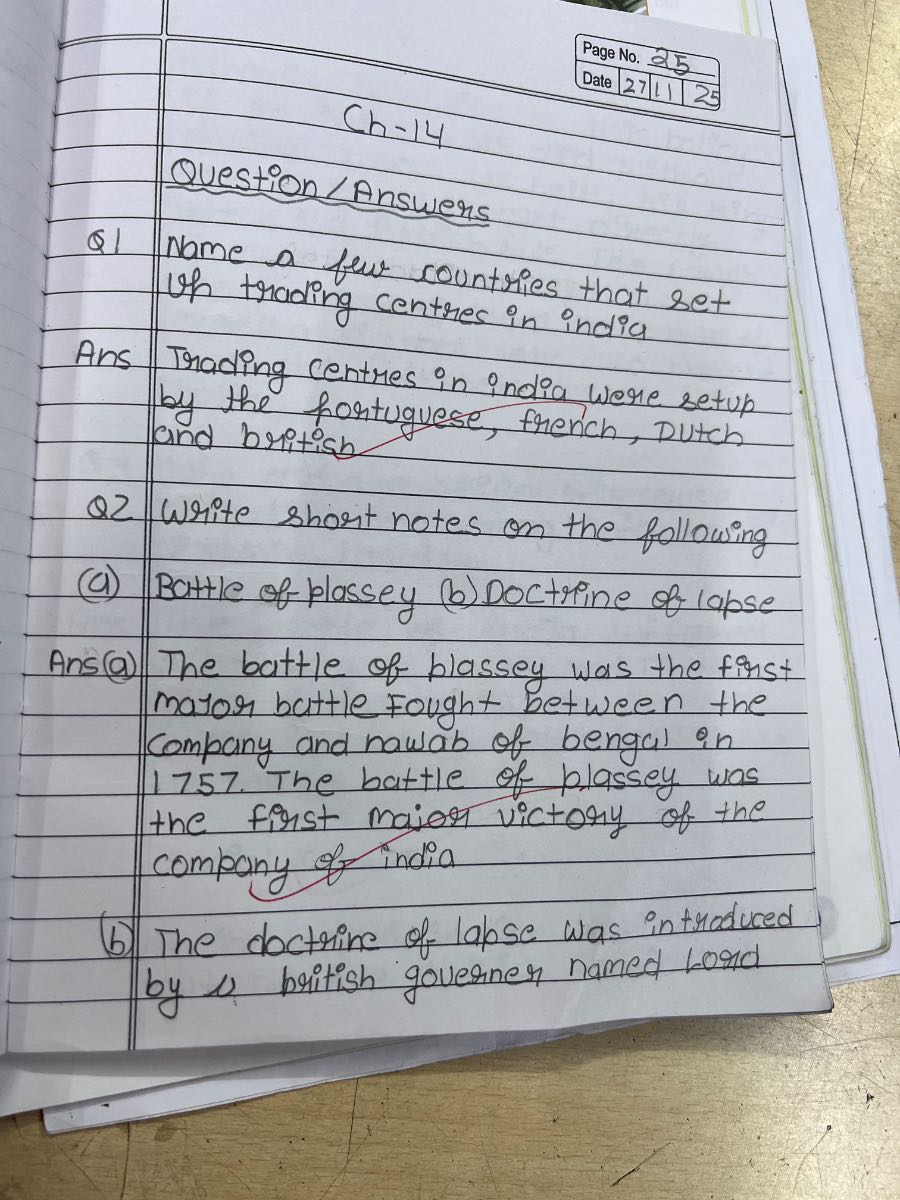 Page No. 25
Date 27 11 25
Ch-14
Question/Answers
Q1 Name a few countries that set
up trading centres in india
Ans Trading centres in india were setup
by the portuguese, french, Dutch
and british
Q2 Write short notes on the following
(a) Battle of plassey (b) Doctrine of lapse
Ans(a) The battle of plassey was the first
major battle Fought between the
company and nawab of bengal in
1757. The battle of plassey was
the first major victory of the
company of india
(b) The doctrine of lapse was introduced
by british governer named Lord